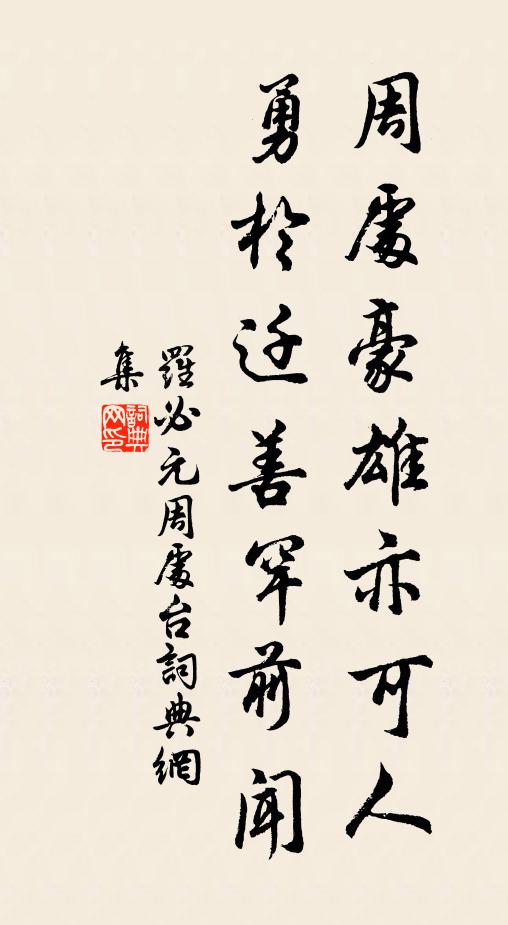 周處豪雄亦可人
勇於迁善罕前闻
羅必元周處台詞典網
集
詞典
网印